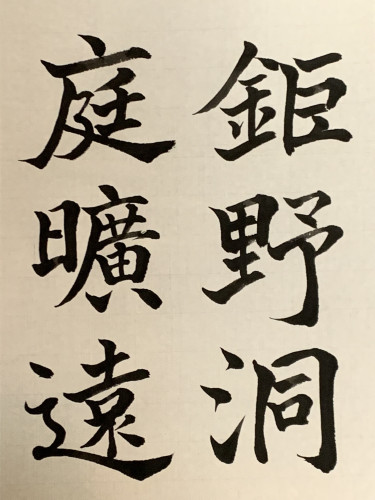 鉅野洞
庭曠遠